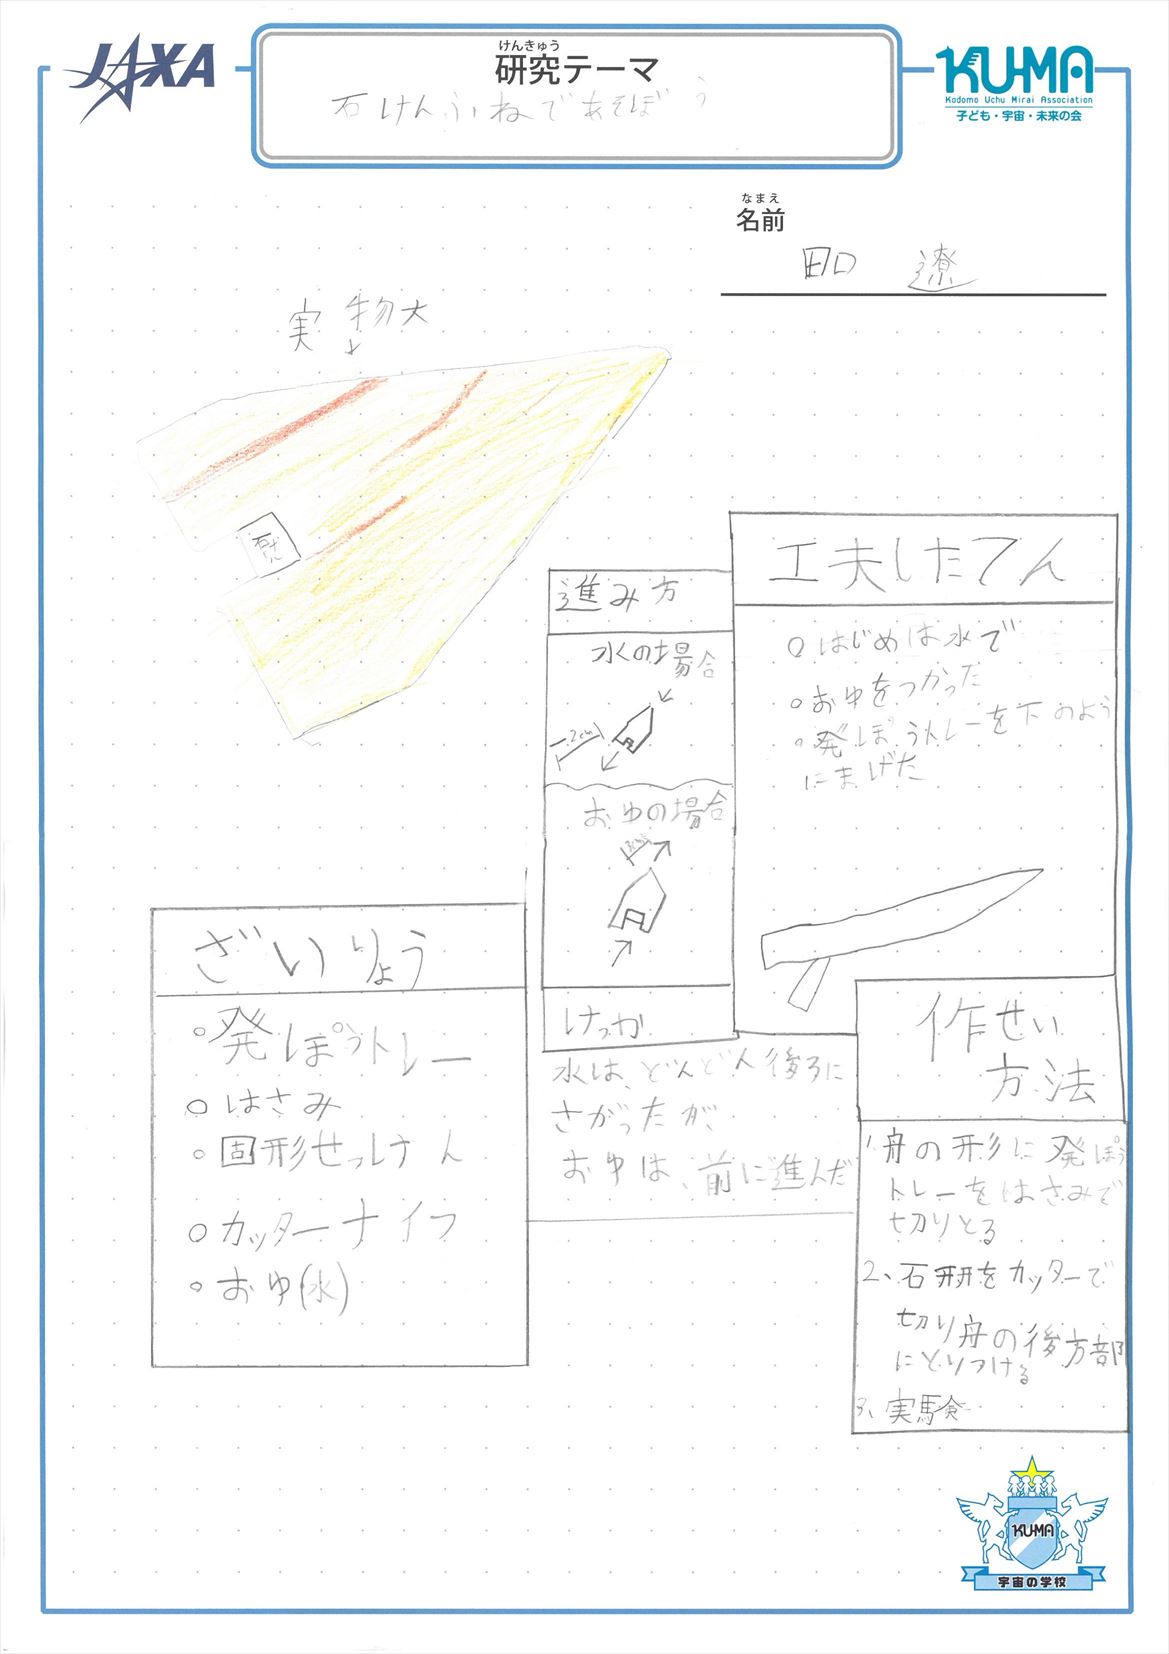 JAXA
けんきゅう
研究テーマ
石けんふねであそぼう
KU-MA
Kodomo Uchu Mirai Association
子ども・宇宙・未来の会
なまえ
名前
田口 遼
実物大
石けん
工夫したてん
○はじめは水で
○おゆをつかった
○発ぽうトレーを下のよう
にまげた
進み方
水の場合
2cm
おゆの場合
けっか
水は、どんどん後ろに
さがったが、
おゆは、前に進んだ
ざいりょう
○発ぽうトレー
○はさみ
○固形せっけん
○カッターナイフ
○おゆ(水)
作せい
方法
1、舟の形に発ぽう
トレーをはさみで
切りとる
2、石をカッターで
切り舟の後方部
にとりつける
3、実験
KU-MA
宇宙の学校